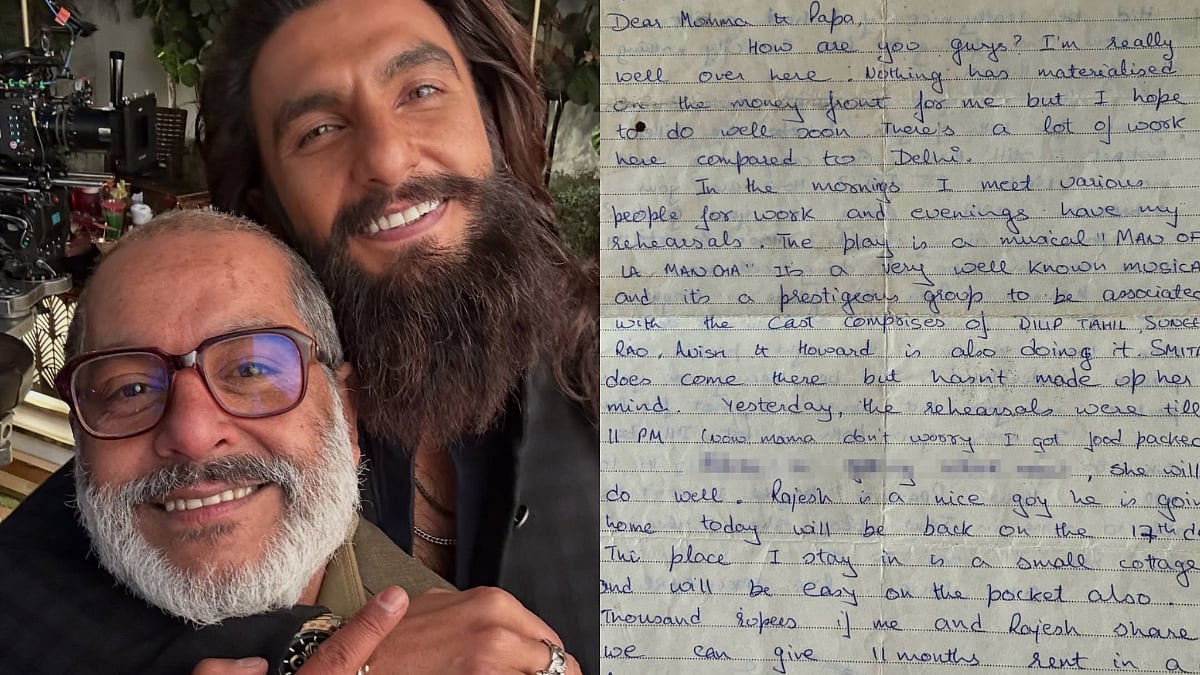 Dear Momma & Papa,
How are you guys? I'm really
well over here. Nothing has materialised
on the money front for me but I hope
to do well soon There's a lot of work
here compared to Delhi.
In the mornings I meet various
people for work and evenings have my
rehearsals. The play is a musical "MAN OF
LA MANCHA" Its a very well known musical
and its a prestigeous group to be associated
with the cast comprises of DILIP TAHIL, SUNEE
RAO, Avish & Howard is also doing it. SMITA
does come there but hasn't made up her
mind. Yesterday, the rehearsals were till
11 PM (now mama don't worry I got food packed
, she will
do well. Rajesh is a nice guy he is goin
home today will be back on the 17th d
The place I stay in is a small cottage
and will be easy on the pocket also.
Thousand rupees if me and Rajesh share
we can give 11 months rent in a